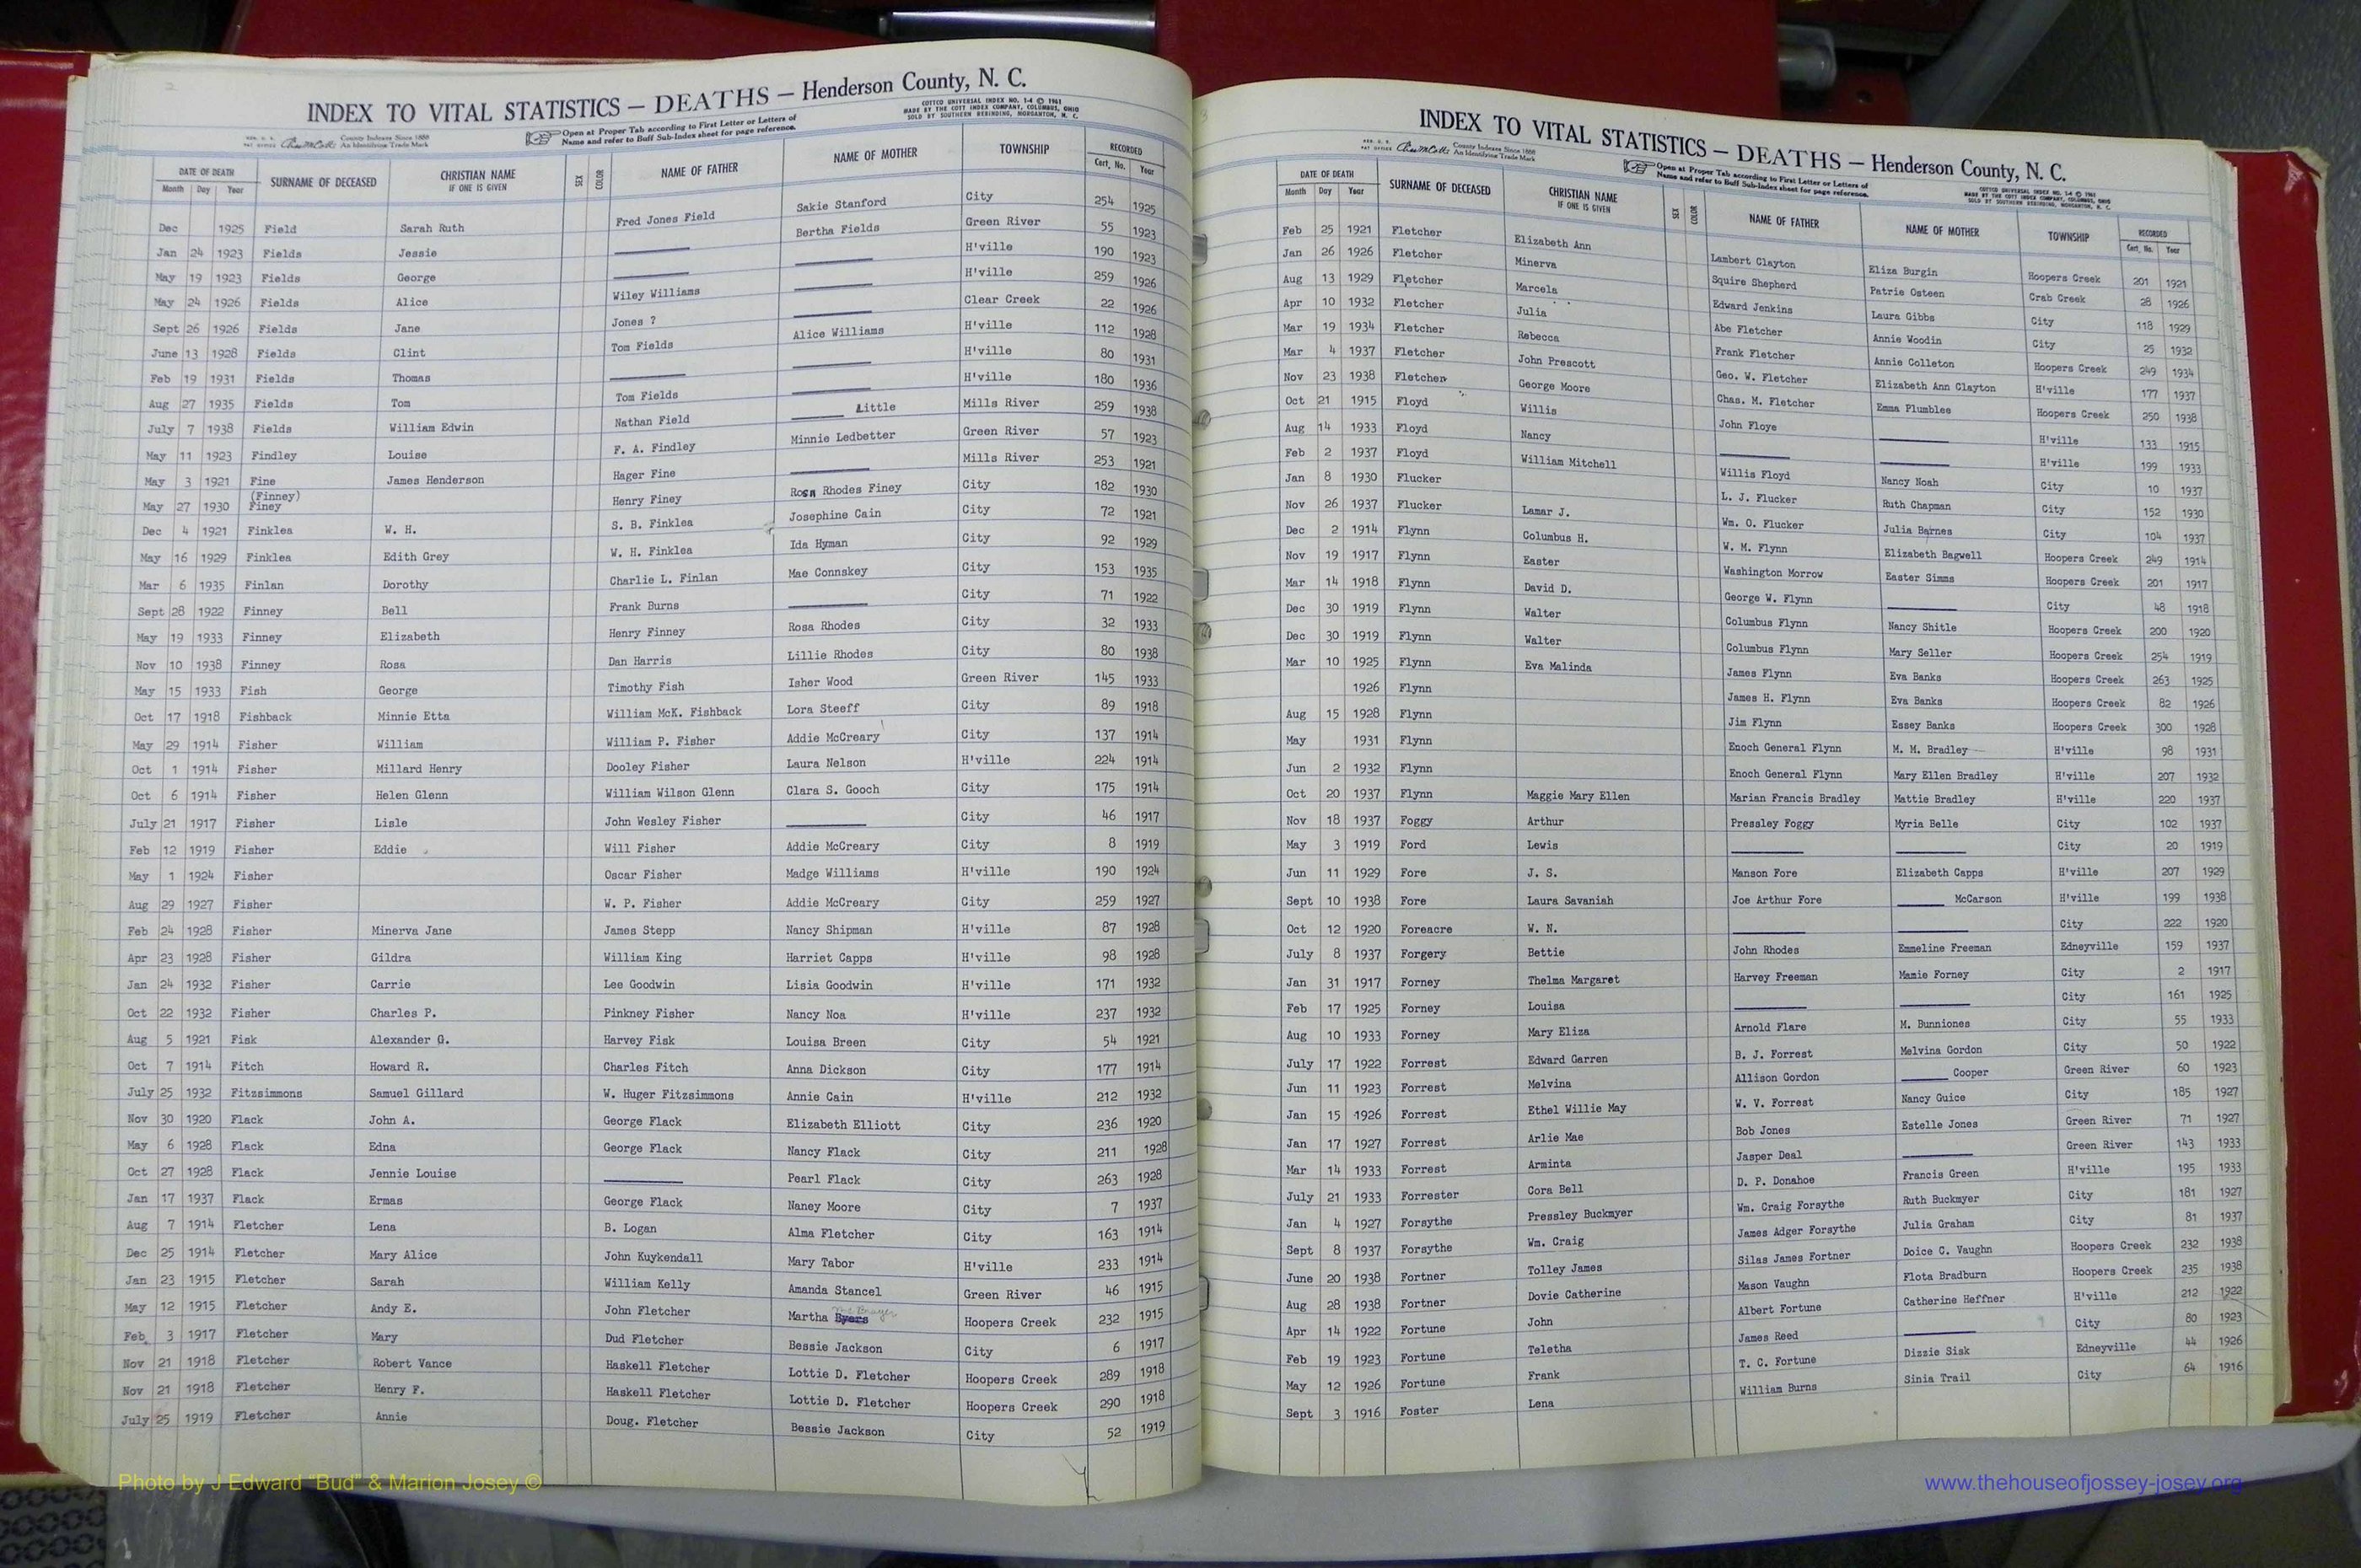 INDEX TO VITAL STATISTICS — DEATHS — Henderson County, N. C.
COTTCO UNIVERSAL INDEX NO. 1-4 © 1961
MADE BY THE COTT INDEX COMPANY, COLUMBUS, OHIO
SOLD BY SOUTHERN REBINDING, MORGANTON, N. C.
County Indexes Since 1888
An Identifying Trade Mark
Open at Proper Tab according to First Letter or Letters of
Name and refer to Buff Sub-Index sheet for page reference.
DATE OF DEATH SURNAME OF DECEASED CHRISTIAN NAME IF ONE IS GIVEN SEX COLOR NAME OF FATHER NAME OF MOTHER TOWNSHIP RECORDED
Month Day Year Cert. No. Year
Dec 1925 Field Sarah Ruth Fred Jones Field Sakie Stanford City 254 1925
Jan 24 1923 Fields Jessie Bertha Fields Green River 55 1923
May 19 1923 Fields George H'ville 190 1923
May 24 1926 Fields Alice Wiley Williams H'ville 259 1926
Sept 26 1926 Fields Jane Jones ? Clear Creek 22 1926
June 13 1928 Fields Clint Tom Fields Alice Williams H'ville 112 1928
Feb 19 1931 Fields Thomas H'ville 80 1931
Aug 27 1935 Fields Tom Tom Fields H'ville 180 1936
July 7 1938 Fields William Edwin Nathan Field Little Mills River 259 1938
May 11 1923 Findley Louise F. A. Findley Minnie Ledbetter Green River 57 1923
May 3 1921 Fine James Henderson Hager Fine Mills River 253 1921
(Finney)
May 27 1930 Finey Henry Finey Rosa Rhodes Finey City 182 1930
Dec 4 1921 Finklea W. H. S. B. Finklea Josephine Cain City 72 1921
May 16 1929 Finklea Edith Grey W. H. Finklea Ida Hyman City 92 1929
Mar 6 1935 Finlan Dorothy Charlie L. Finlan Mae Connskey City 153 1935
Sept 28 1922 Finney Bell Frank Burns City 71 1922
May 19 1933 Finney Elizabeth Henry Finney Rosa Rhodes City 32 1933
Nov 10 1938 Finney Rosa Dan Harris Lillie Rhodes City 80 1938
May 15 1933 Fish George Timothy Fish Isher Wood Green River 145 1933
Oct 17 1918 Fishback Minnie Etta William McK. Fishback Lora Steeff City 89 1918
May 29 1914 Fisher William William P. Fisher Addie McCreary City 137 1914
Oct 1 1914 Fisher Millard Henry Dooley Fisher Laura Nelson H'ville 224 1914
Oct 6 1914 Fisher Helen Glenn William Wilson Glenn Clara S. Gooch City 175 1914
July 21 1917 Fisher Lisle John Wesley Fisher City 46 1917
Feb 12 1919 Fisher Eddie Will Fisher Addie McCreary City 8 1919
May 1 1924 Fisher Oscar Fisher Madge Williams H'ville 190 1924
Aug 29 1927 Fisher W. P. Fisher Addie McCreary City 259 1927
Feb 24 1928 Fisher Minerva Jane James Stepp Nancy Shipman H'ville 87 1928
Apr 23 1928 Fisher Gildra William King Harriet Capps H'ville 98 1928
Jan 24 1932 Fisher Carrie Lee Goodwin Lisia Goodwin H'ville 171 1932
Oct 22 1932 Fisher Charles P. Pinkney Fisher Nancy Noa H'ville 237 1932
Aug 5 1921 Fisk Alexander G. Harvey Fisk Louisa Breen City 54 1921
Oct 7 1914 Fitch Howard R. Charles Fitch Anna Dickson City 177 1914
July 25 1932 Fitzsimmons Samuel Gillard W. Huger Fitzsimmons Annie Cain H'ville 212 1932
Nov 30 1920 Flack John A. George Flack Elizabeth Elliott City 236 1920
May 6 1928 Flack Edna George Flack Nancy Flack City 211 1928
Oct 27 1928 Flack Jennie Louise Pearl Flack City 263 1928
Jan 17 1937 Flack Ermas George Flack Naney Moore City 7 1937
Aug 7 1914 Fletcher Lena B. Logan Alma Fletcher City 163 1914
Dec 25 1914 Fletcher Mary Alice John Kuykendall Mary Tabor H'ville 233 1914
Jan 23 1915 Fletcher Sarah William Kelly Amanda Stancel Green River 46 1915
May 12 1915 Fletcher Andy E. John Fletcher Martha Byers Hoopers Creek 232 1915
Feb 3 1917 Fletcher Mary Dud Fletcher Bessie Jackson City 6 1917
Nov 21 1918 Fletcher Robert Vance Haskell Fletcher Lottie D. Fletcher Hoopers Creek 289 1918
Nov 21 1918 Fletcher Henry F. Haskell Fletcher Lottie D. Fletcher Hoopers Creek 290 1918
July 25 1919 Fletcher Annie Doug. Fletcher Bessie Jackson City 52 1919
Photo by J Edward “Bud” & Marion Josey ©
INDEX TO VITAL STATISTICS — DEATHS — Henderson County, N. C.
County Indexes Since 1888
An Identifying Trade Mark
Open at Proper Tab according to First Letter or Letters of
Name and refer to Buff Sub-Index sheet for page reference.
COTTCO UNIVERSAL INDEX NO. 1-4 © 1961
MADE BY THE COTT INDEX COMPANY, COLUMBUS, OHIO
SOLD BY SOUTHERN REBINDING, MORGANTON, N. C.
DATE OF DEATH SURNAME OF DECEASED CHRISTIAN NAME IF ONE IS GIVEN SEX COLOR NAME OF FATHER NAME OF MOTHER TOWNSHIP RECORDED
Month Day Year Cert. No. Year
Feb 25 1921 Fletcher Elizabeth Ann Lambert Clayton Eliza Burgin Hoopers Creek 201 1921
Jan 26 1926 Fletcher Minerva Squire Shepherd Patrie Osteen Crab Creek 28 1926
Aug 13 1929 Fletcher Marcela Edward Jenkins Laura Gibbs City 118 1929
Apr 10 1932 Fletcher Julia Abe Fletcher Annie Woodin City 25 1932
Mar 19 1934 Fletcher Rebecca Frank Fletcher Annie Colleton Hoopers Creek 249 1934
Mar 4 1937 Fletcher John Prescott Geo. W. Fletcher Elizabeth Ann Clayton H'ville 177 1937
Nov 23 1938 Fletcher George Moore Chas. M. Fletcher Emma Plumblee Hoopers Creek 250 1938
Oct 21 1915 Floyd Willis John Floye H'ville 133 1915
Aug 14 1933 Floyd Nancy H'ville 199 1933
Feb 2 1937 Floyd William Mitchell Willis Floyd Nancy Noah City 10 1937
Jan 8 1930 Flucker L. J. Flucker Ruth Chapman City 152 1930
Nov 26 1937 Flucker Lamar J. Wm. O. Flucker Julia Barnes City 104 1937
Dec 2 1914 Flynn Columbus H. W. M. Flynn Elizabeth Bagwell Hoopers Creek 249 1914
Nov 19 1917 Flynn Easter Washington Morrow Easter Simms Hoopers Creek 201 1917
Mar 14 1918 Flynn David D. George W. Flynn City 48 1918
Dec 30 1919 Flynn Walter Columbus Flynn Nancy Shitle Hoopers Creek 200 1920
Dec 30 1919 Flynn Walter Columbus Flynn Mary Seller Hoopers Creek 254 1919
Mar 10 1925 Flynn Eva Malinda James Flynn Eva Banks Hoopers Creek 263 1925
1926 Flynn James H. Flynn Eva Banks Hoopers Creek 82 1926
Aug 15 1928 Flynn Jim Flynn Essey Banks Hoopers Creek 300 1928
May 1931 Flynn Enoch General Flynn M. M. Bradley H'ville 98 1931
Jun 2 1932 Flynn Enoch General Flynn Mary Ellen Bradley H'ville 207 1932
Oct 20 1937 Flynn Maggie Mary Ellen Marian Francis Bradley Mattie Bradley H'ville 220 1937
Nov 18 1937 Foggy Arthur Pressley Foggy Myria Belle City 102 1937
May 3 1919 Ford Lewis City 20 1919
Jun 11 1929 Fore J. S. Manson Fore Elizabeth Capps H'ville 207 1929
Sept 10 1938 Fore Laura Savaniah Joe Arthur Fore McCarson H'ville 199 1938
Oct 12 1920 Foreacre W. N. City 222 1920
July 8 1937 Forgery Bettie John Rhodes Emmeline Freeman Edneyville 159 1937
Jan 31 1917 Forney Thelma Margaret Harvey Freeman Mamie Forney City 2 1917
Feb 17 1925 Forney Louisa City 161 1925
Aug 10 1933 Forney Mary Eliza Arnold Flare M. Bunniones City 55 1933
July 17 1922 Forrest Edward Garren B. J. Forrest Melvina Gordon City 50 1922
Jun 11 1923 Forrest Melvina Allison Gordon Cooper Green River 60 1923
Jan 15 1926 Forrest Ethel Willie May W. V. Forrest Nancy Guice City 185 1927
Jan 17 1927 Forrest Arlie Mae Bob Jones Estelle Jones Green River 71 1927
Mar 14 1933 Forrest Arminta Jasper Deal Green River 143 1933
July 21 1933 Forrester Cora Bell D. P. Donahoe Francis Green H'ville 195 1933
Jan 4 1927 Forsythe Pressley Buckmyer Wm. Craig Forsythe Ruth Buckmyer City 181 1927
Sept 8 1937 Forsythe Wm. Craig James Adger Forsythe Julia Graham City 81 1937
June 20 1938 Fortner Tolley James Silas James Fortner Doice C. Vaughn Hoopers Creek 232 1938
Aug 28 1938 Fortner Dovie Catherine Mason Vaughn Flota Bradburn Hoopers Creek 235 1938
Apr 14 1922 Fortune John Albert Fortune Catherine Heffner H'ville 212 1922
Feb 19 1923 Fortune Teletha James Reed City 80 1923
May 12 1926 Fortune Frank T. C. Fortune Dizzie Sisk Edneyville 44 1926
Sept 3 1916 Foster Lena William Burns Sinia Trail City 64 1916
www.thehouseofjossey-josey.org